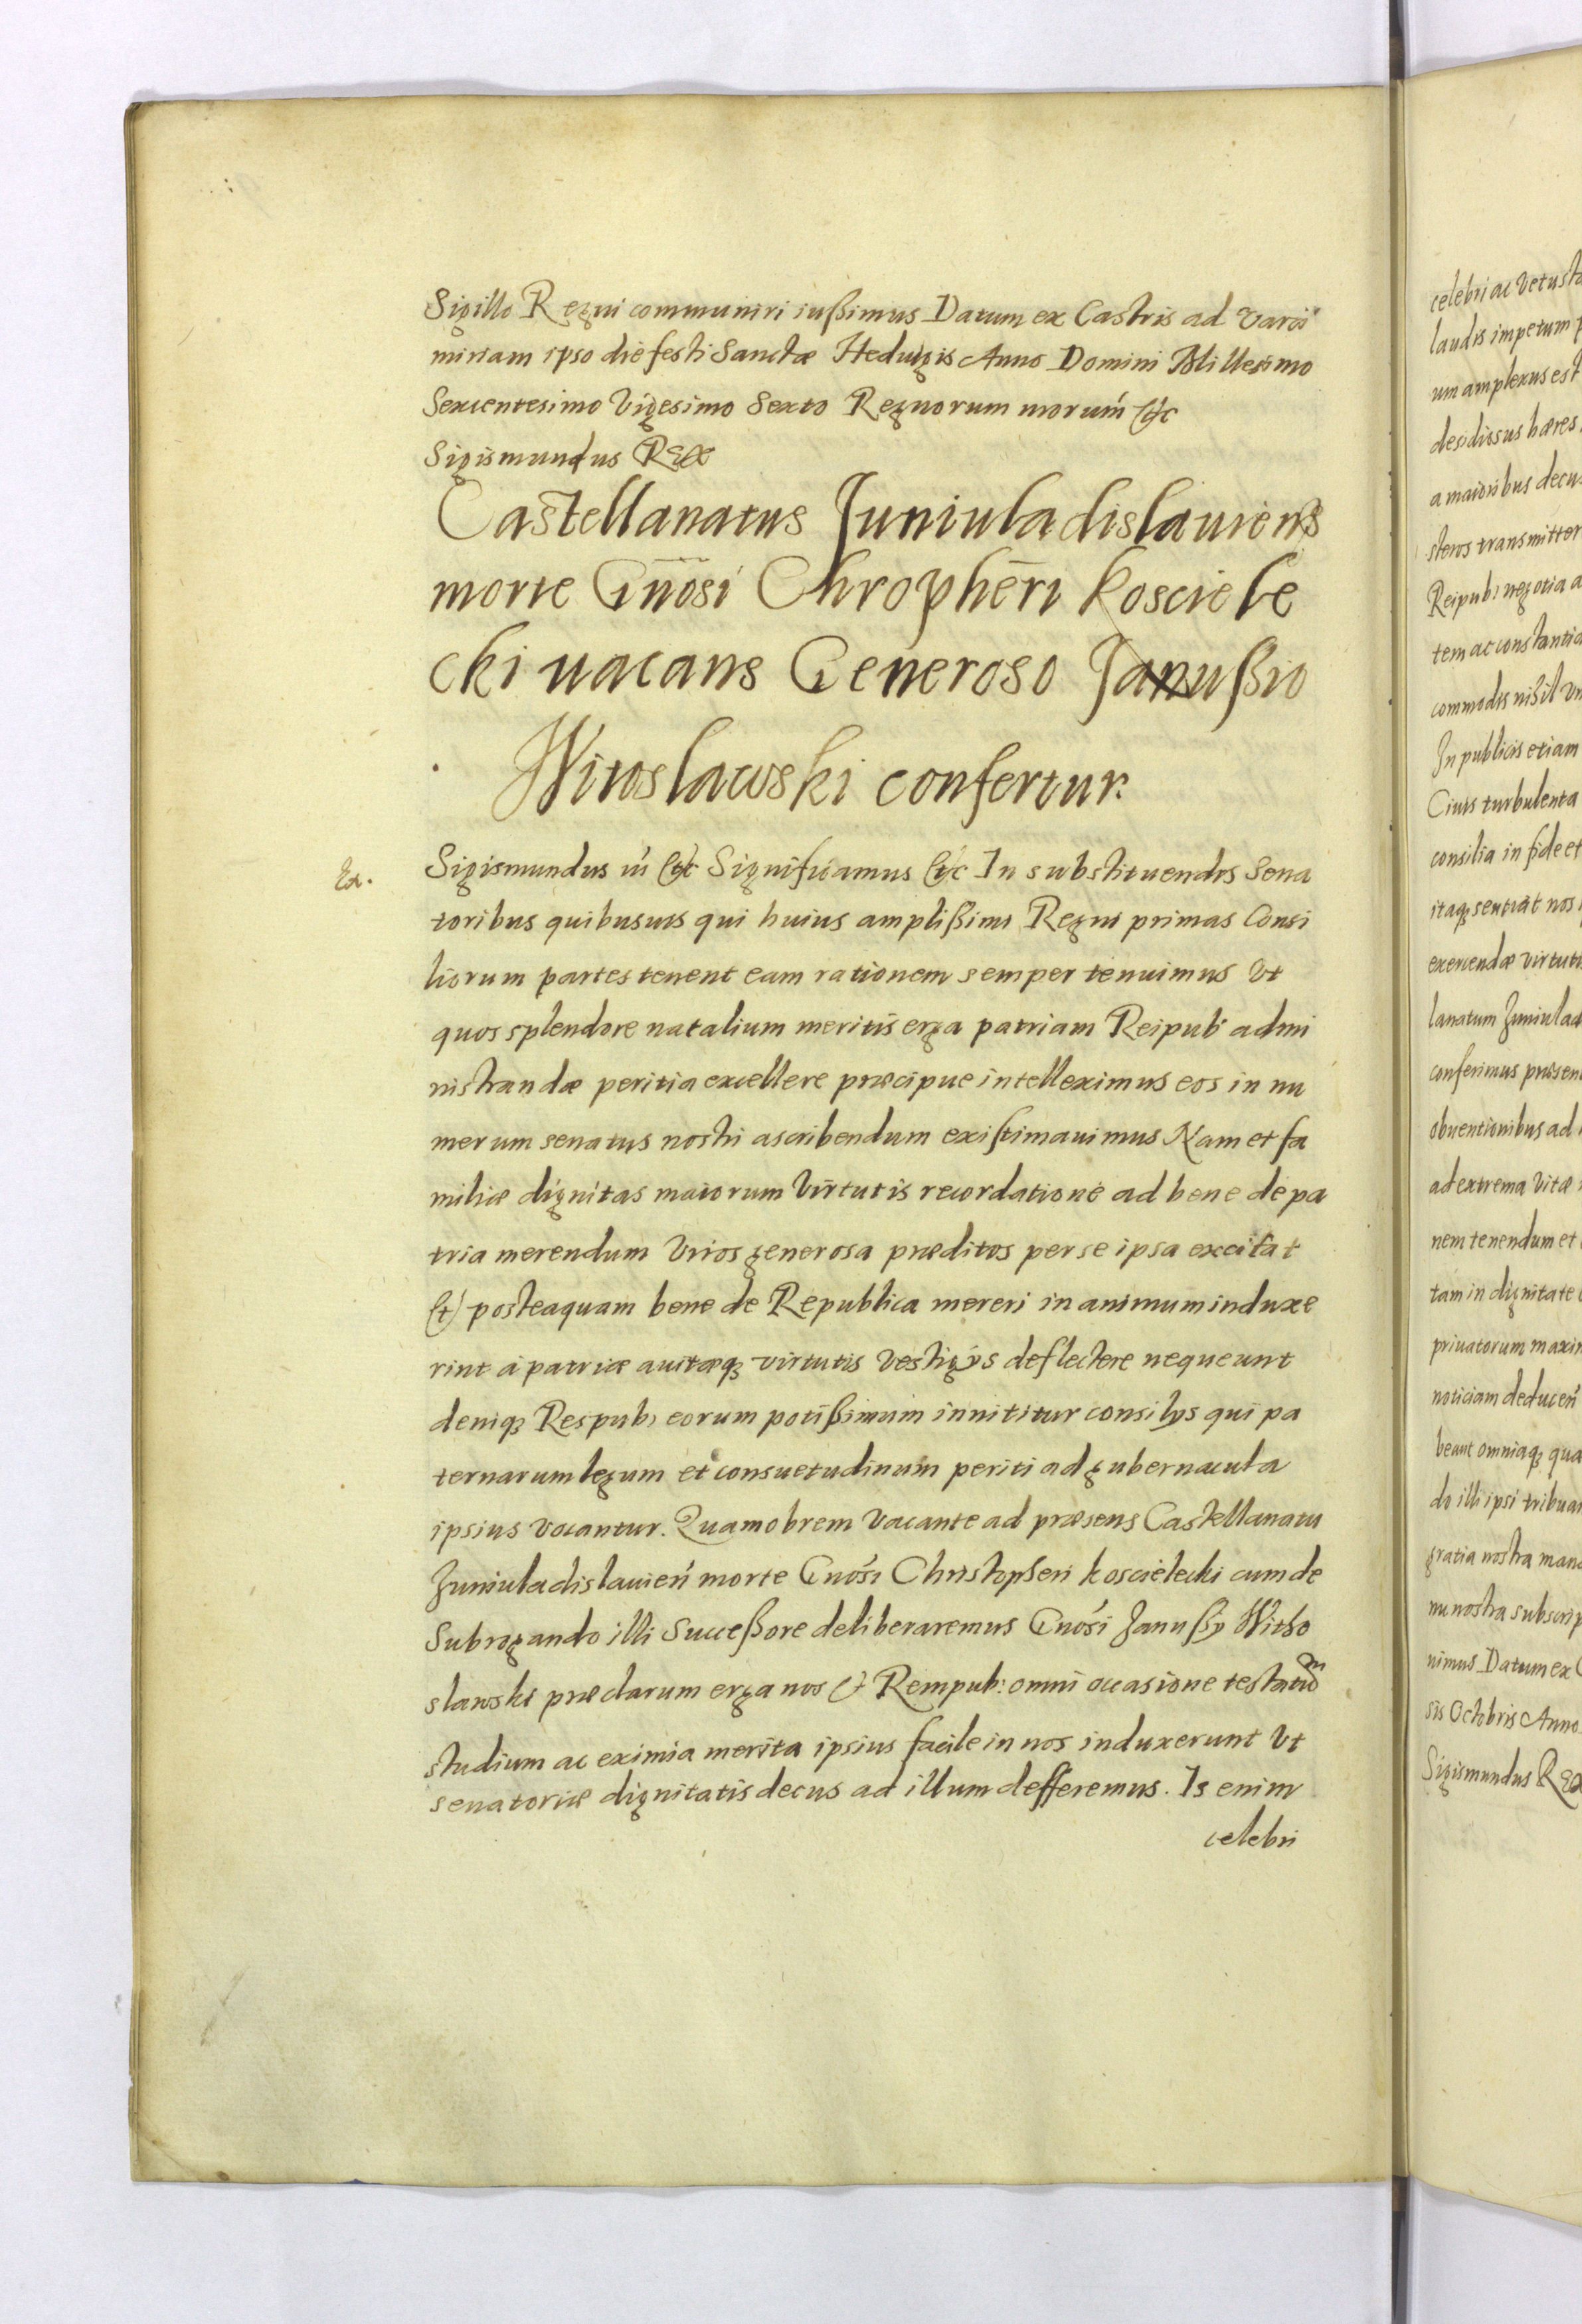 Sigillo Regni communiri iußimus Datum ex Castris ad Varci
miriam ipso die festi Sanctæ Heduigis Anno Domini Millesimo
Sexcentesimo Vigesimo Sexto Regnorum nrorum &c
Sigismundus Rex
Castellanatus Juniuladislauiens
morte Gnosi Chropheri Kosciele
cki uacans Generoso Janußio
Witoslawski confertur.
Ex.
Sigismundus iii &c Significamus &c In substituendis Sena
toribus quibusuis qui huius amplißimi Regni primas Consi
liorum partes tenent eam rationem semper tenuimus Vt
quos splendore natalium meritis erga patriam Reipub admi
nistrandæ peritia excellere præcipue intelleximus eos in nu
merum senatus nostri ascribendum existimauimus Nam et fa
miliæ dignitas maiorum Virtutis recordatione ad bene de pa
tria merendum Viros generosa præditos per se ipsa excitat
& posteaquam bene de Republica mereri in animum induxe
rint à patriæ auitæq virtutis Vestigys deflectere nequeunt
deniq Respub eorum potißimum innititur consilys qui pa
ternarum legum et consuetudinum periti ad gubernacula
ipsius vocantur. Quamobrem Vacante ad præsens Castellanatu
Juniuladislauien morte Gnosi Christopheri Koscielecki cum de
Subrogando illi Succeßore deliberaremus Gnosi Janußy Witho
slawski præclarum erga nos & Rempub: omni occasione testatum
studium ac eximia merita ipsius facile in nos induxerunt Vt
senatoriæ dignitatis decus ad illum defferemus. Is enim
celebri
celebri ac Vetusta
laudis impetum p
um amplexus est
desidiosus hæres
a maioribus decus
steros transmitter
Reipub negotia a
tem ac constantia
commodis nihil Vn
In publicis etiam
Ciuis turbulenta
consilia in fide et
itaq sentiat nos
exercendæ virtutis
lanatum Juniulad
conferimus præsen
obuentionibus ad
ad extrema Vitæ
nem tenendum et
tam in dignitate
priuatorum maxim
noticiam deducen
beant omniaq qua
do illi ipsi tribuan
gratia nostra mand
nu nostra subscrip
nimus Datum ex C
sis Octobris Anno
Sigismundus Rex